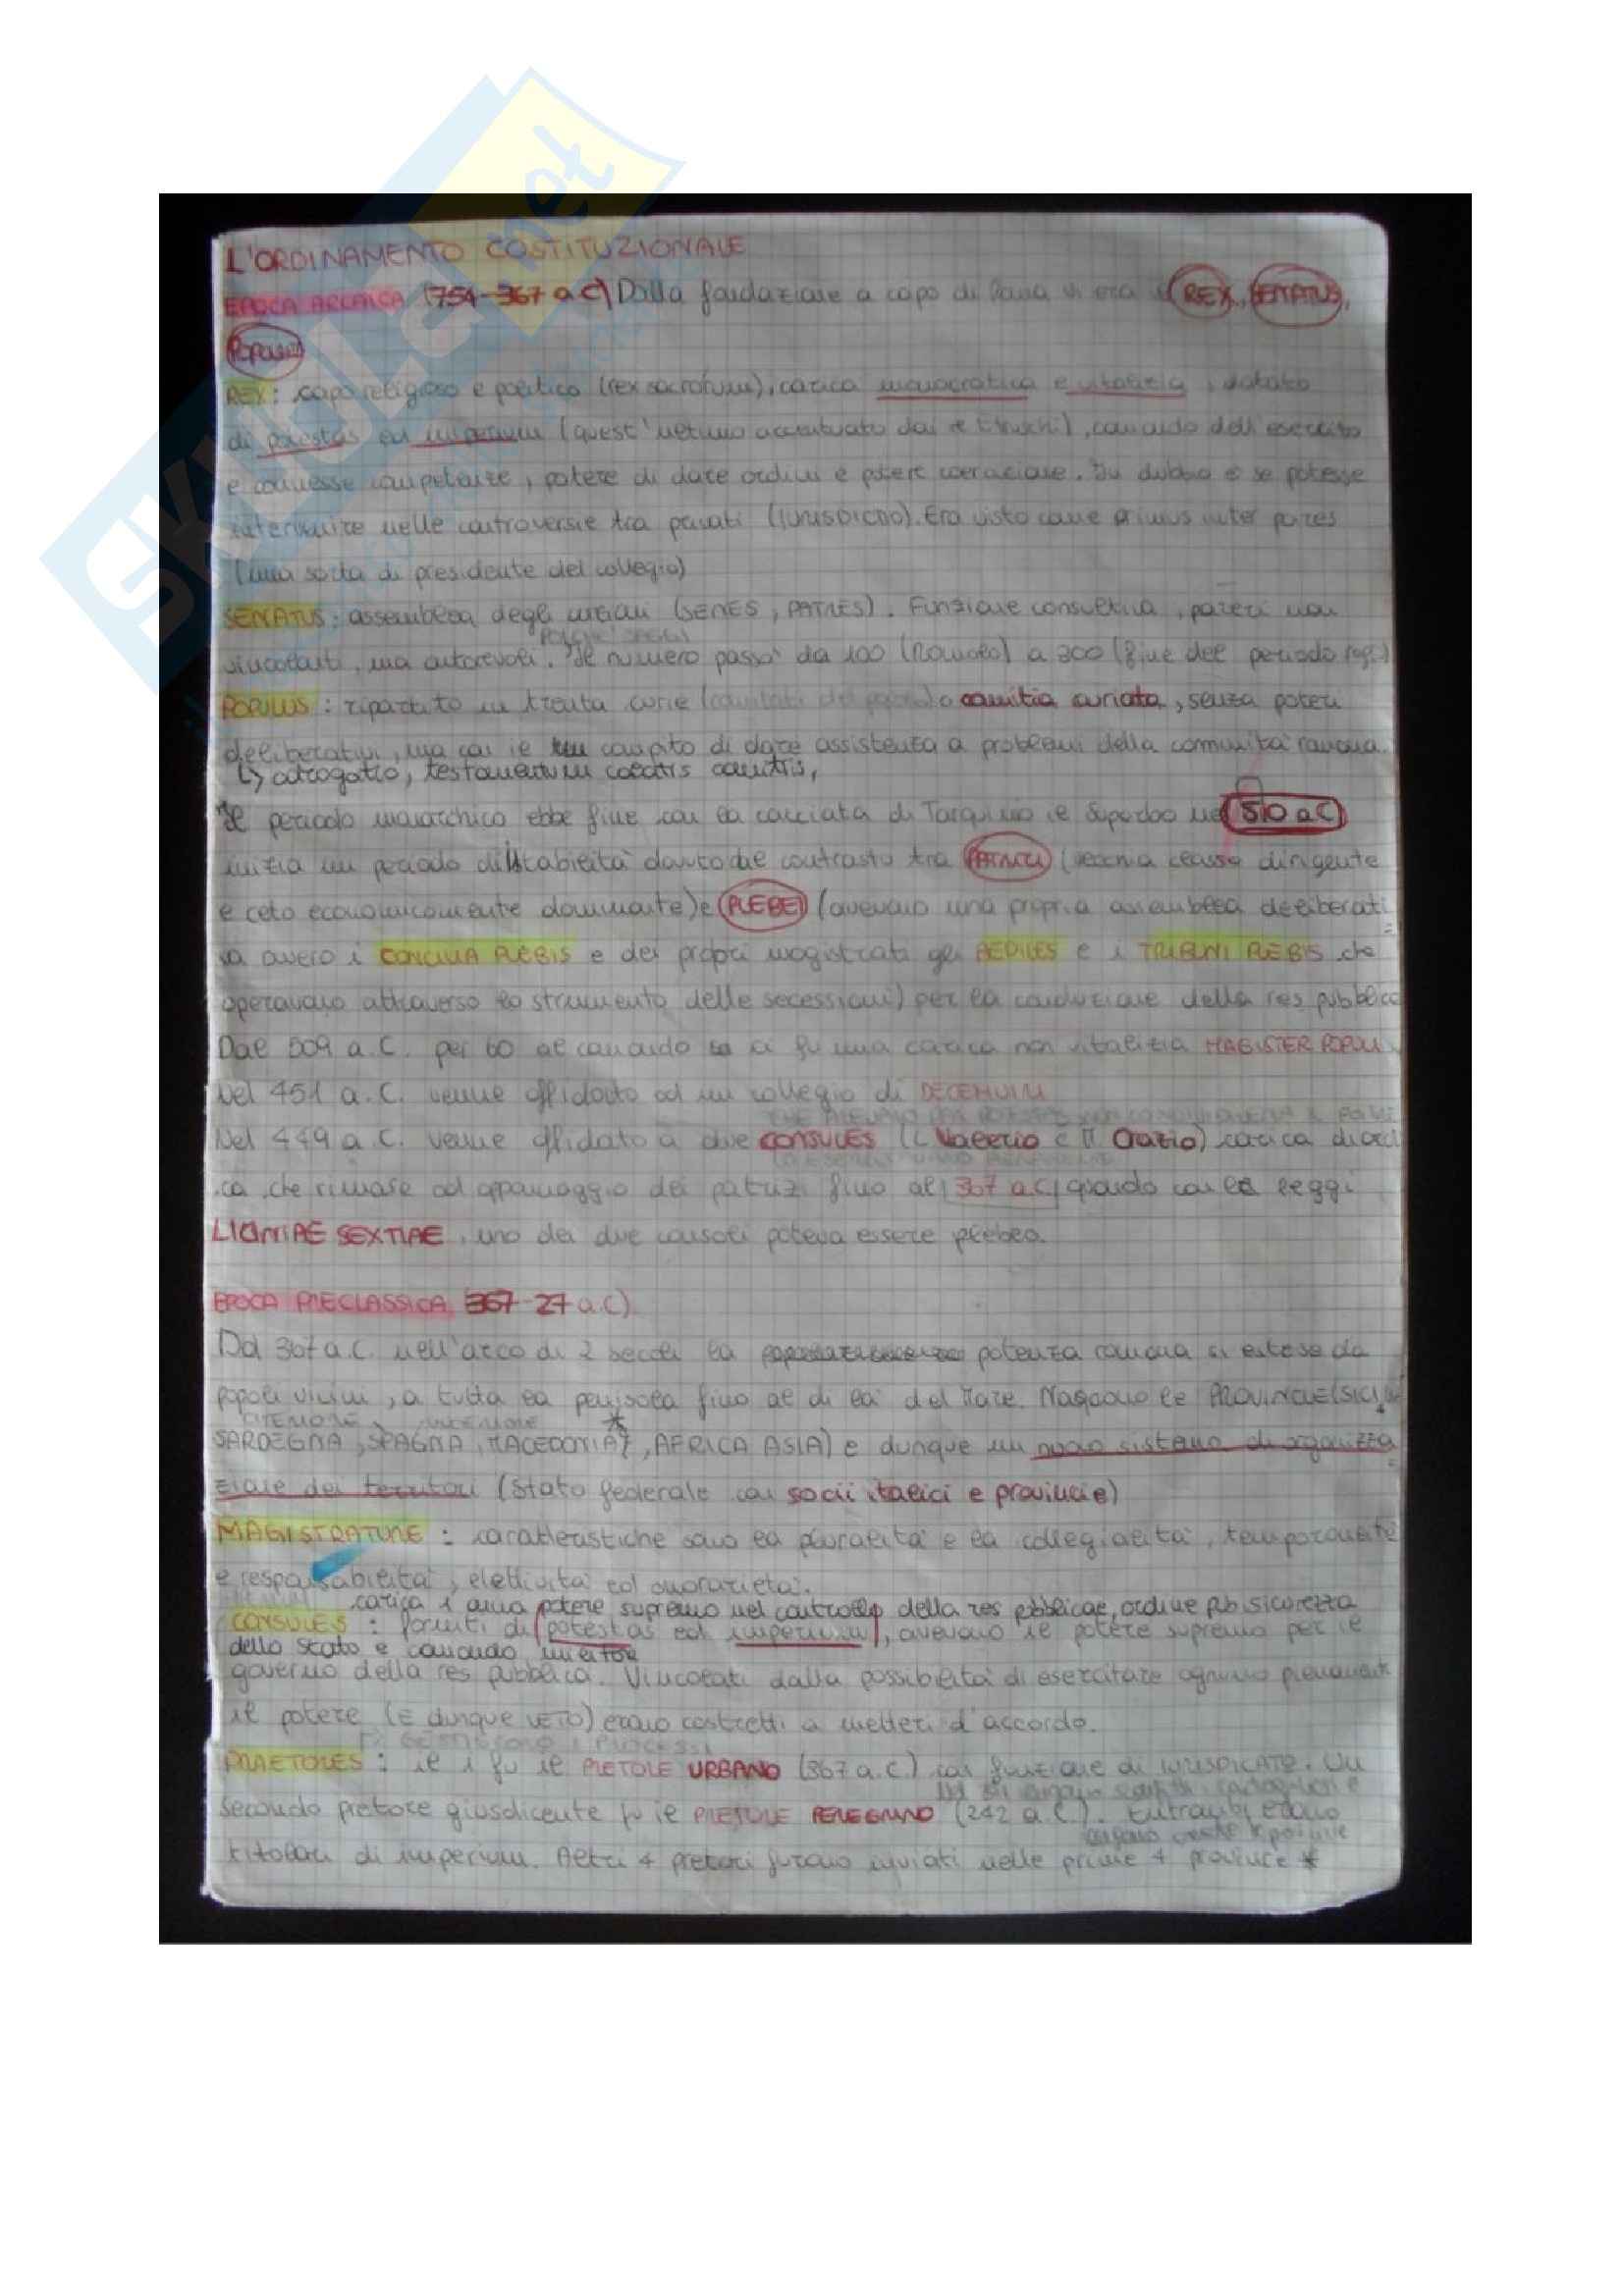 SKUOLA.net
L'ORDINAMENTO COSTITUZIONALE
EPOCA ARCAICA (754-367 a.C) Dalla fondazione a capo di Roma vi era REX, SENATUS,
POPOLUS
REX: capo religioso e politico (rex sacrorum), carica monocratica e vitalizia, dotato
di potestas ed imperium (quest'ultimo accentuato dai re Etruschi), comando dell'esercito
e connesse competenze, potere di dare ordini e potere coercizione. In dubbio è se potesse
intervenire nelle controversie tra privati (IURISDICTIO). Era visto come primus inter pares
(una sorta di presidente del collegio)
SENATUS: assemblea degli anziani (SENES, PATRES). Funzione consultiva, pareri non
POICHÉ SAGGI
vincolanti, ma autorevoli. Il numero passò da 100 (ROMOLO) a 300 (fine del periodo reg.)
POPULUS: ripartito in trenta curie o comitia curiata, senza poteri
deliberativi, ma con il compito di dare assistenza a problemi della comunità romana.
↳ adrogatio, testamentum calatis comitis,
Il periodo monarchico ebbe fine con la cacciata di Tarquinio il Superbo nel 510 a.C
inizia un periodo di instabilità dovuto al contrasto tra PATRIZI (vecchia classe dirigente
e ceto economicamente dominante) e PLEBEI (avevano una propria assemblea deliberati=
va ovvero i CONCILIA PLEBIS e dei propri magistrati gli AEDILES e i TRIBUNI PLEBIS che
operavano attraverso lo strumento delle secessioni) per la conduzione della res pubblica
Dal 509 a.C. per 60 al comando ci fu una carica non vitalizia MAGISTER POPULI.
Nel 451 a.C. venne affidato ad un collegio di DECEMVIRI
Nel 449 a.C. venne affidato a due CONSULES (L. Valerio e M. Orazio) carica
ca, che rimase ad appannaggio dei patrizi fino al 367 a.C quando con le leggi
LICINIAE SEXTIAE, uno dei due consoli poteva essere plebeo.
EPOCA PRECLASSICA 367-27 a.C)
Dal 367 a.C. nell'arco di 2 secoli la potenza romana si estese da
popoli vicini, a tutta la penisola fino al di là del Mare. Nascono le PROVINCIE (SICILIA
CITERIORE, ULTERIORE *
SARDEGNA, SPAGNA, MACEDONIA, AFRICA ASIA) e dunque un nuovo sistema di organizza=
zione dei territori (Stato federale con socii italici e provincie)
MAGISTRATURE: caratteristiche sono la pluralità e la collegialità, temporaneità
e responsabilità, elettività ed onorarietà.
carica 1 anno potere supremo nel controllo della res pubblicae, ordine pb sicurezza
CONSULES: forniti di potestas ed imperium, avevano il potere supremo per il
dello stato e comando militare
governo della res pubblica. Vincolati dalla possibilità di esercitare ognuno pienamente
il potere (E dunque VETO) erano costretti a metteri d'accordo.
GESTISCONO I PROCESSI
PRAETORES: il 1 fu il PRETORE URBANO (367 a.C.) con funzione di IURISDICATO. Un
secondo pretore giusdicente fu il PRETORE PEREGRINO (242 a.C.). Entrambi erano
titolari di imperium. Altri 4 pretori furono inviati nelle prime 4 province *